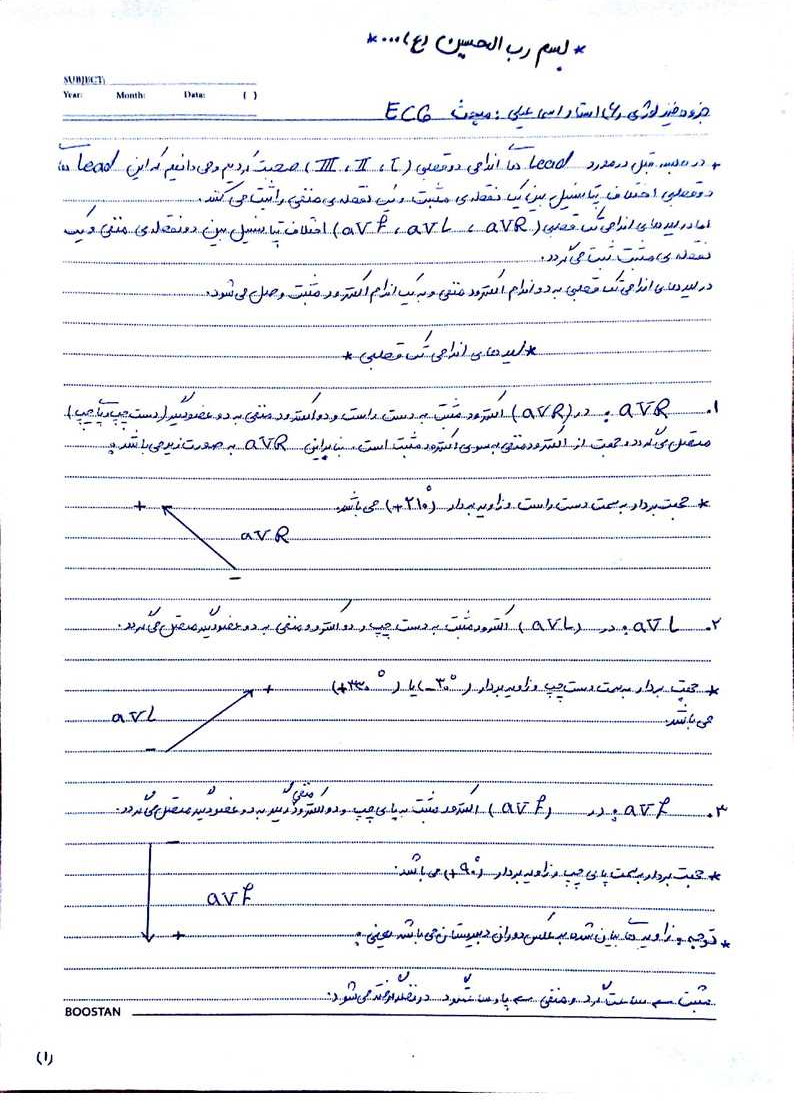 * بسم رب الحسین (ع)... *
SUBJECT:
Year: Month: Date: ( )
جزوه فیزیولوژی استاد اسماعیلی : مبحث ECG
* در جلسه قبل در مورد Lead ها اندامی دو قطبی (I ، II ، III) صحبت کردیم و می دانیم که این Lead ها
دو قطبی اختلاف پتانسیل بین یک نقطه ی مثبت و یک نقطه ی منفی را ثبت می کنند.
اما در لید های اندامی تک قطبی (aVR ، aVL ، aVF) اختلاف پتانسیل بین دو نقطه ی منفی و یک
نقطه ی مثبت ثبت می گردد.
در لید های اندامی تک قطبی به دو اندام الکترود منفی و به یک اندام الکترود مثبت وصل می شود.
* لید های اندامی تک قطبی *
۱. aVR : در (aVR) الکترود مثبت به دست راست و دو الکترود منفی به دو عضو دیگر (دست چپ و پا چپ)
متصل می گردد و جهت از الکترود منفی به سوی الکترود مثبت است. بنابراین aVR به صورت زیر می باشد :
* جهت بردار به سمت دست راست و زاویه بردار (+۲۱۰°) می باشد.
+
aVR
−
۲. aVL : در (aVL) الکترود مثبت به دست چپ و دو الکترود منفی به دو عضو دیگر متصل می گردد.
* جهت بردار به سمت دست چپ و زاویه بردار (−۳۰°) یا (+۳۳۰°)
می باشد.
+
aVL
−
۳. aVF : در (aVF) الکترود مثبت به پای چپ و دو الکترود منفی به دو عضو دیگر متصل می گردد.
−
* جهت بردار به سمت پای چپ و زاویه بردار (+۹۰°) می باشد.
aVF
+
* توجه : زاویه ها بیان شده بر عکس دوران دبیرستان می باشد یعنی :
مثبت ساعت گرد و منفی پاد ساعت گرد در نظر گرفته می شود.
BOOSTAN
(۱)